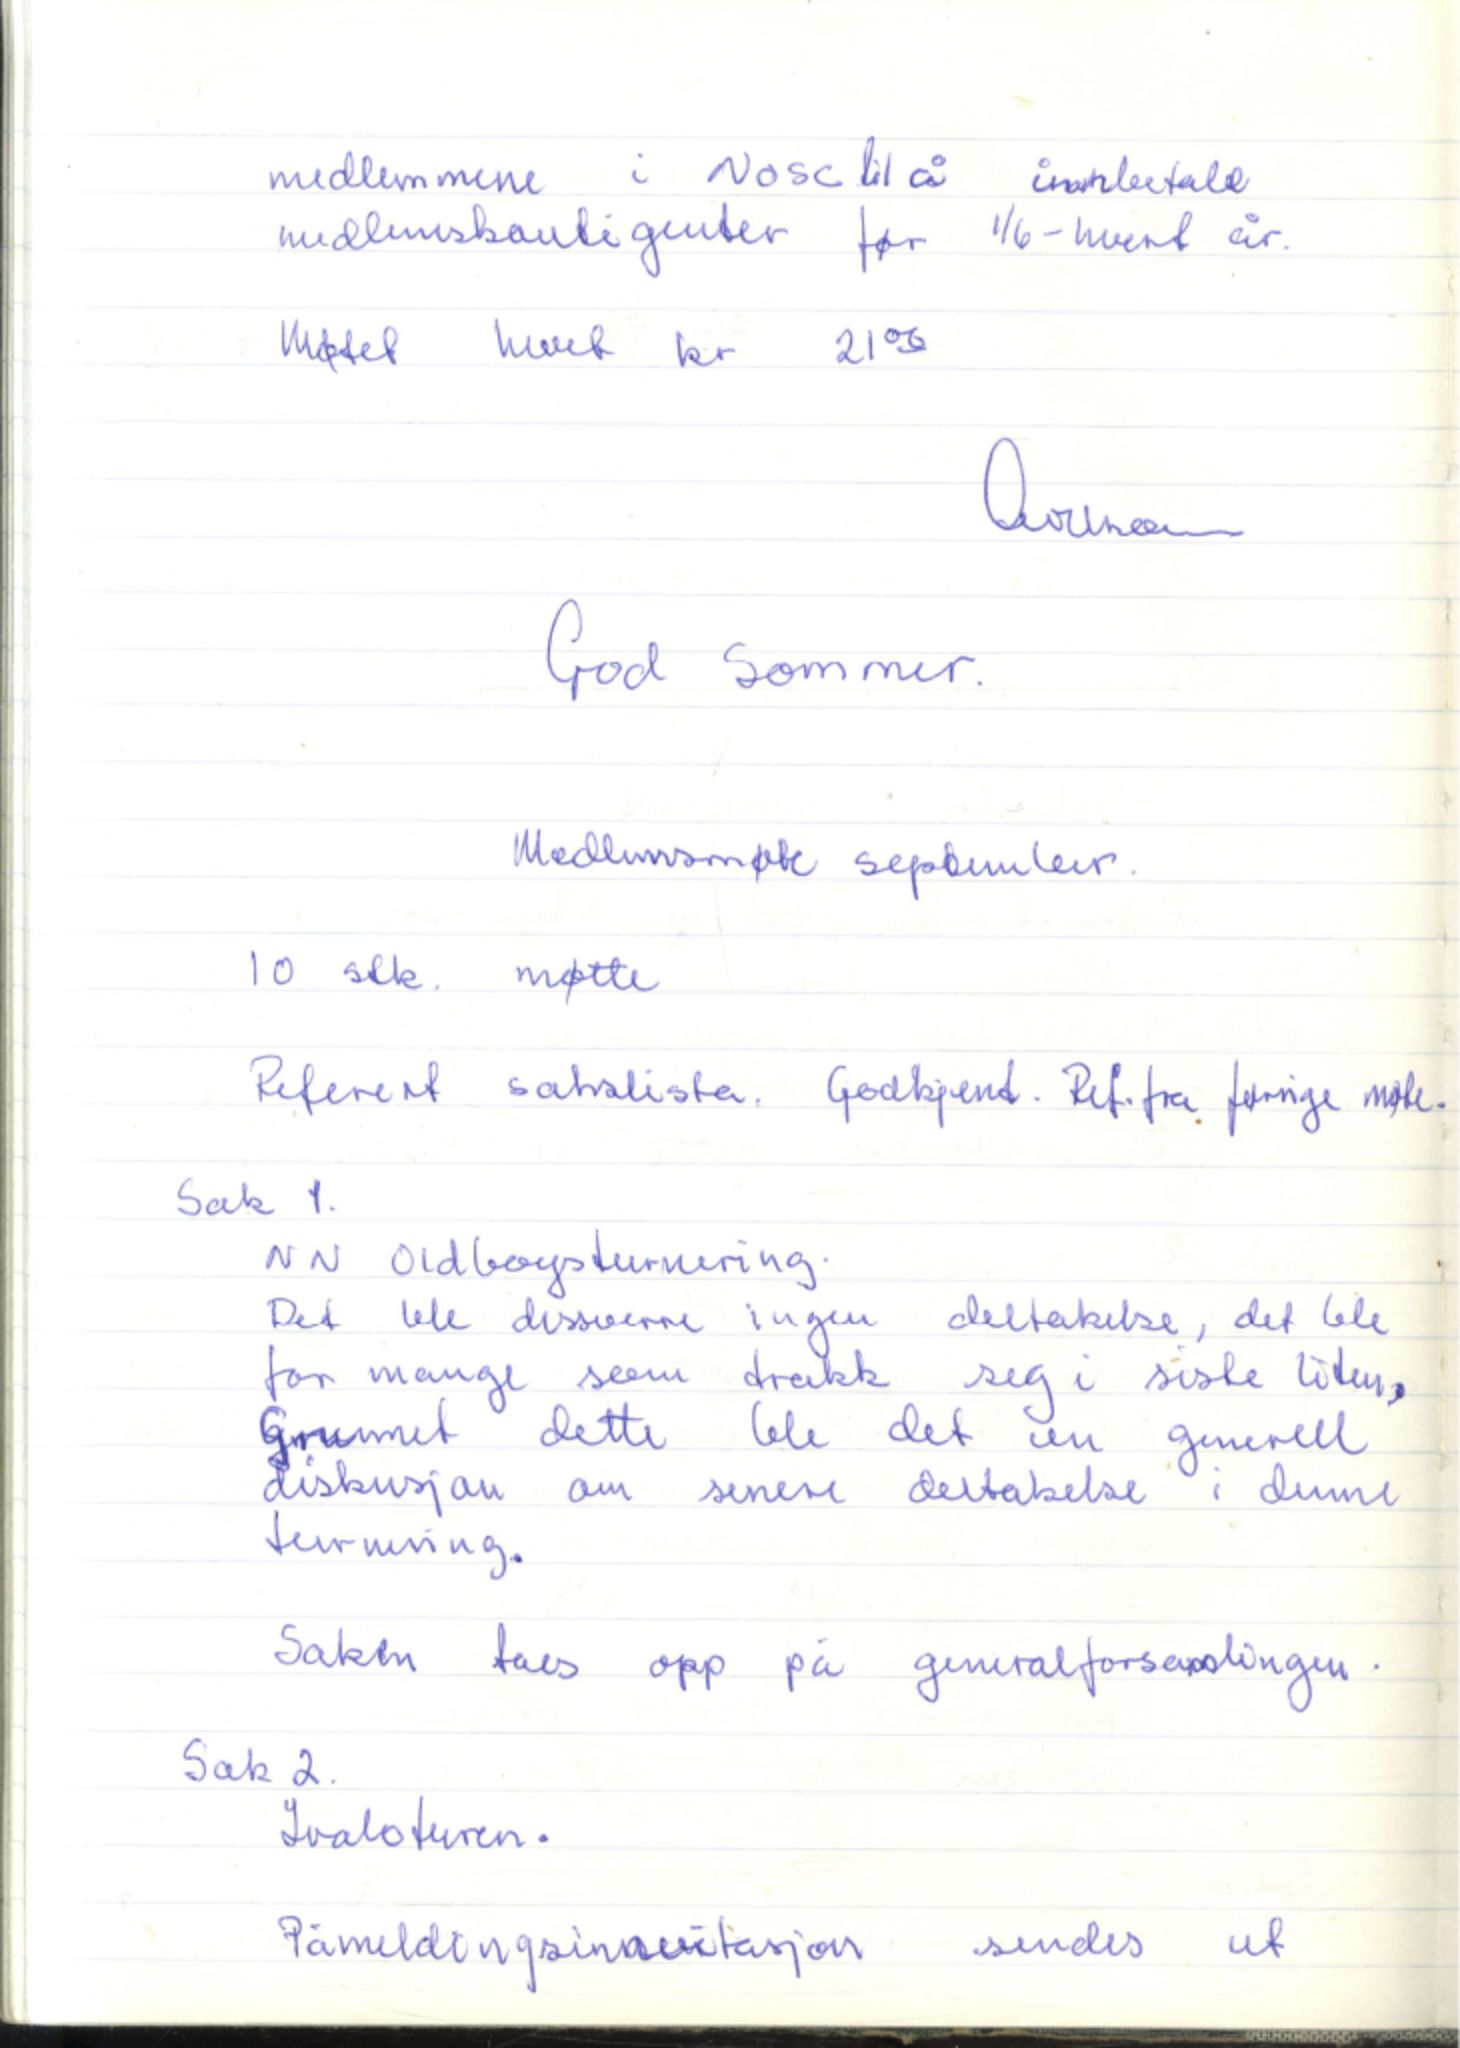 medlemmene i NOSC til å innbetale
medlemskontigenter før 1/6 - hvert år.
Møtet hevet kr 21⁰⁰
God Sommer.
Medlemsmøte september.
10 stk. møtte
Referert saksliste. Godkjent. Ref. fra forrige møte.
Sak 1.
NN Oldboysturnering.
Det ble dessverre ingen deltakelse, det ble
for mange som trakk seg i siste liten,
Grunnet dette ble det en generell
diskusjon om senere deltakelse i denne
turnering.
Saken taes opp på generalforsamlingen.
Sak 2.
Ivaloturen.
Påmeldingsinnvitasjon sendes ut